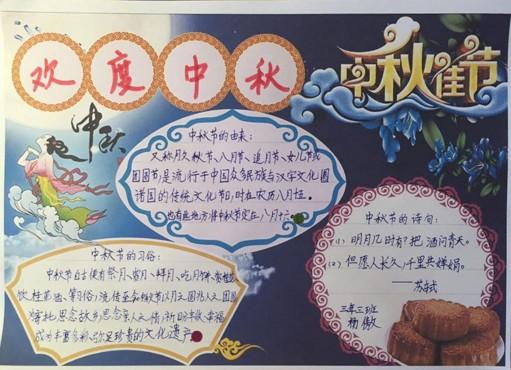 欢度中秋
中秋佳节
中秋
中秋节的由来:
又称月夕、秋节、八月节、追月节、女儿节或
团圆节,是流行于中国众多民族与汉字文化圈
诸国的传统文化节日,时在农历八月十五。
也有些地方将中秋节定在八月十六。
中秋节的诗句:
(1) 明月几时有?把酒问青天。
(2) 但愿人长久,千里共婵娟。
——苏轼
三年三班
杨傲
中秋节的习俗:
中秋节自古便有祭月、赏月、拜月、吃月饼、赏桂花、
饮桂花酒等习俗,流传至今,中秋节以月之圆兆人之团圆
寄托思念故乡,思念亲人之情,祈盼丰收、幸福,
成为丰富多彩、弥足珍贵的文化遗产。